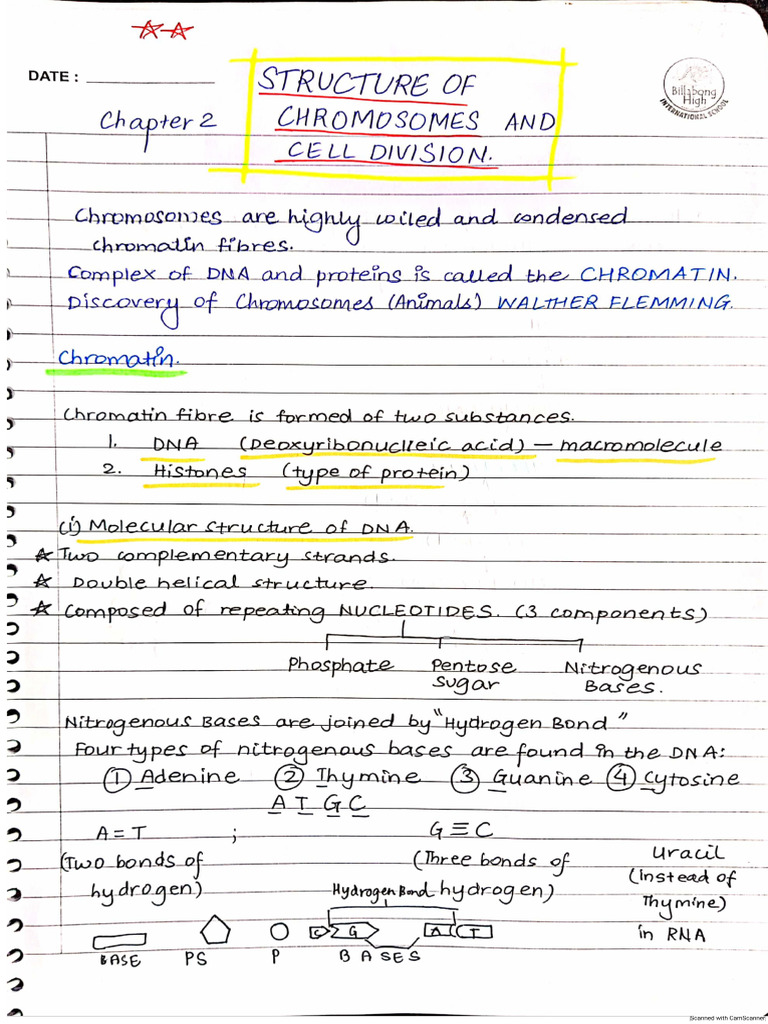 DATE :
Billabong
High
INTERNATIONAL SCHOOL
Chapter 2
STRUCTURE OF
CHROMOSOMES AND
CELL DIVISION.
Chromosomes are highly coiled and condensed
chromatin fibres.
Complex of DNA and proteins is called the CHROMATIN.
Discovery of Chromosomes (Animals) WALTHER FLEMMING.
Chromatin.
Chromatin fibre is formed of two substances.
1. DNA (Deoxyribonucleic acid) — macromolecule
2. Histones (type of protein)
(i) Molecular structure of DNA.
☆ Two complementary strands.
☆ Double helical structure.
☆ Composed of repeating NUCLEOTIDES. (3 components)
Phosphate Pentose Sugar Nitrogenous Bases.
Nitrogenous Bases are joined by "Hydrogen Bond"
Four types of nitrogenous bases are found in the DNA:
① Adenine ② Thymine ③ Guanine ④ Cytosine
A T G C
A = T ; G ≡ C
(Two bonds of hydrogen)
(Three bonds of hydrogen)
Uracil
(instead of
Thymine)
in RNA
Hydrogen Bond
C G A T
BASE PS P BASES
Scanned with CamScanner